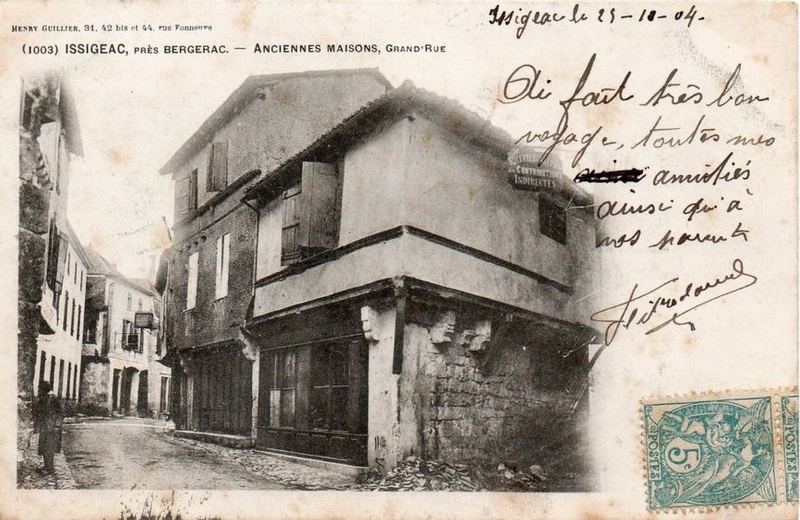 Henry Guillier, 31, 42 bis et 44, rue Fonneuve
(1003) ISSIGEAC, PRÈS BERGERAC. — ANCIENNES MAISONS, GRAND'RUE
Issigeac le 25-10-04.
Ai fait très bon
voyage, toutes mes
amitiés
ainsi qu'à
vos parents
CONTRIBUTIONS
INDIRECTES
POSTES
5c
POSTES
Issigeac